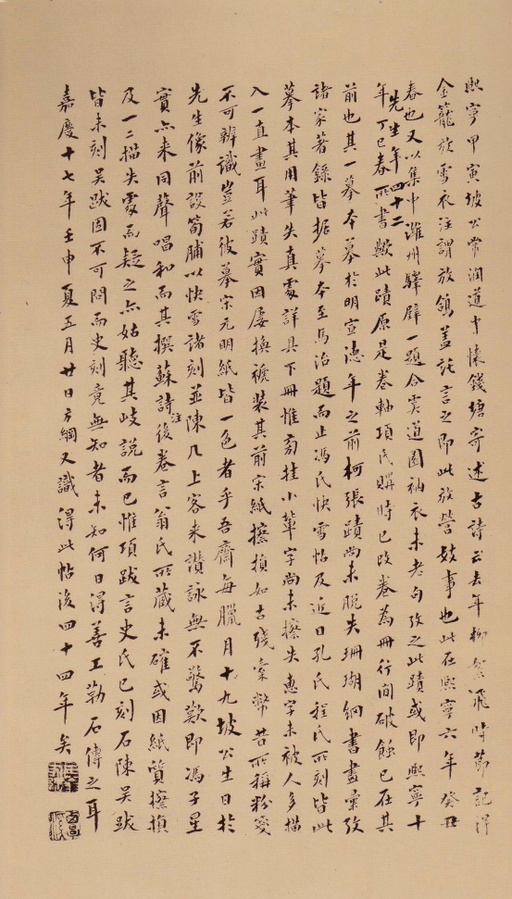 熙寧甲寅坡公常潤道中懷錢塘寄述古詩云去年柳絮飛時節記得
金籠放雪衣注謂放鴿蓋託言之即此放營妓事也此在熙寧六年癸丑
春也又以集中濰州驛壁一題合奚道圓衲衣未老句攷之此蹟或即熙寧十
年丁巳春所書歟此蹟原是卷軸項氏購時已改卷為冊行間破蝕已在其
先生年四十二
前也其一摹本摹於明宣德年之前柯張蹟尚未脫失珊瑚網書畫彙攷
諸家著錄皆据摹本至馬治題而止馮氏快雪帖及近日孔氏程氏所刻皆此
摹本其用筆失真處詳具下冊惟剪挂小葷字尚未擦失惠字未被人多描
入一直畫耳此蹟實因屢換褫裝其前宋紙擦損如古殘彙弊昔所稱粉箋
不可辨識豈若彼摹宋元明紙皆一色者乎吾齋每臘月十九坡公生日於
先生像前設筍脯以快雪諸刻並陳几上客来讚詠無不驚歎即馮子星
實亦来同聲唱和而其撰蘇詩注後卷言翁氏所藏未確或因紙質擦損
及一二描失處而疑之亦姑聽其歧說而已惟項跋言史氏已刻石陳吳跋
皆未刻吴跋因不可問而史刻竟無知者未知何日得善工勒石傳之耳
嘉慶十七年壬申夏五月廿日方綱又識得此帖後四十四年矣